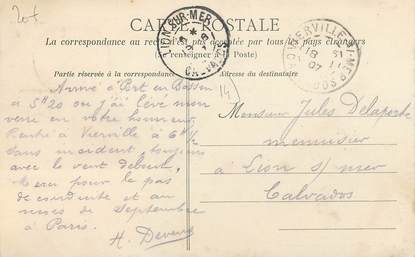 20f
CARTE POSTALE
La correspondance au recto n'est pas acceptée par tous les pays étrangers
(Se renseigner à la Poste)
Partie réservée à la correspondance
Adresse du destinataire
LION-SUR-MER
CALVADOS
VIERVILLE-S-MER
18
07
14
Arrivé à Port en Bessin
à 5h20 où j'ai levé mon
verre en votre honneur.
Rentré à Vierville à 6h1/2
sans incident, toujours
avec le vent debout,
Merci pour le pas
de conduite et au
mois de Septembre
à Paris.
H. Devend
Monsieur Jules Delaporte
menuisier
à Lion s/ mer
Calvados